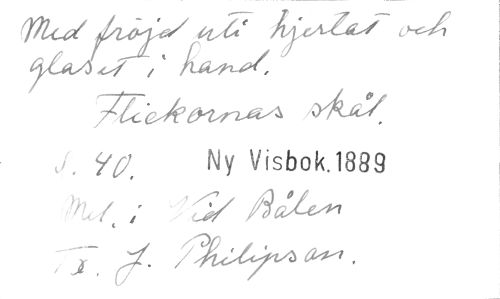 Med fröjd uti hjertat och
glaset i hand.
Flickornas skål.
S. 40. Ny Visbok. 1889
Mel. i Vid Bålen
Tx. J. Philipson.